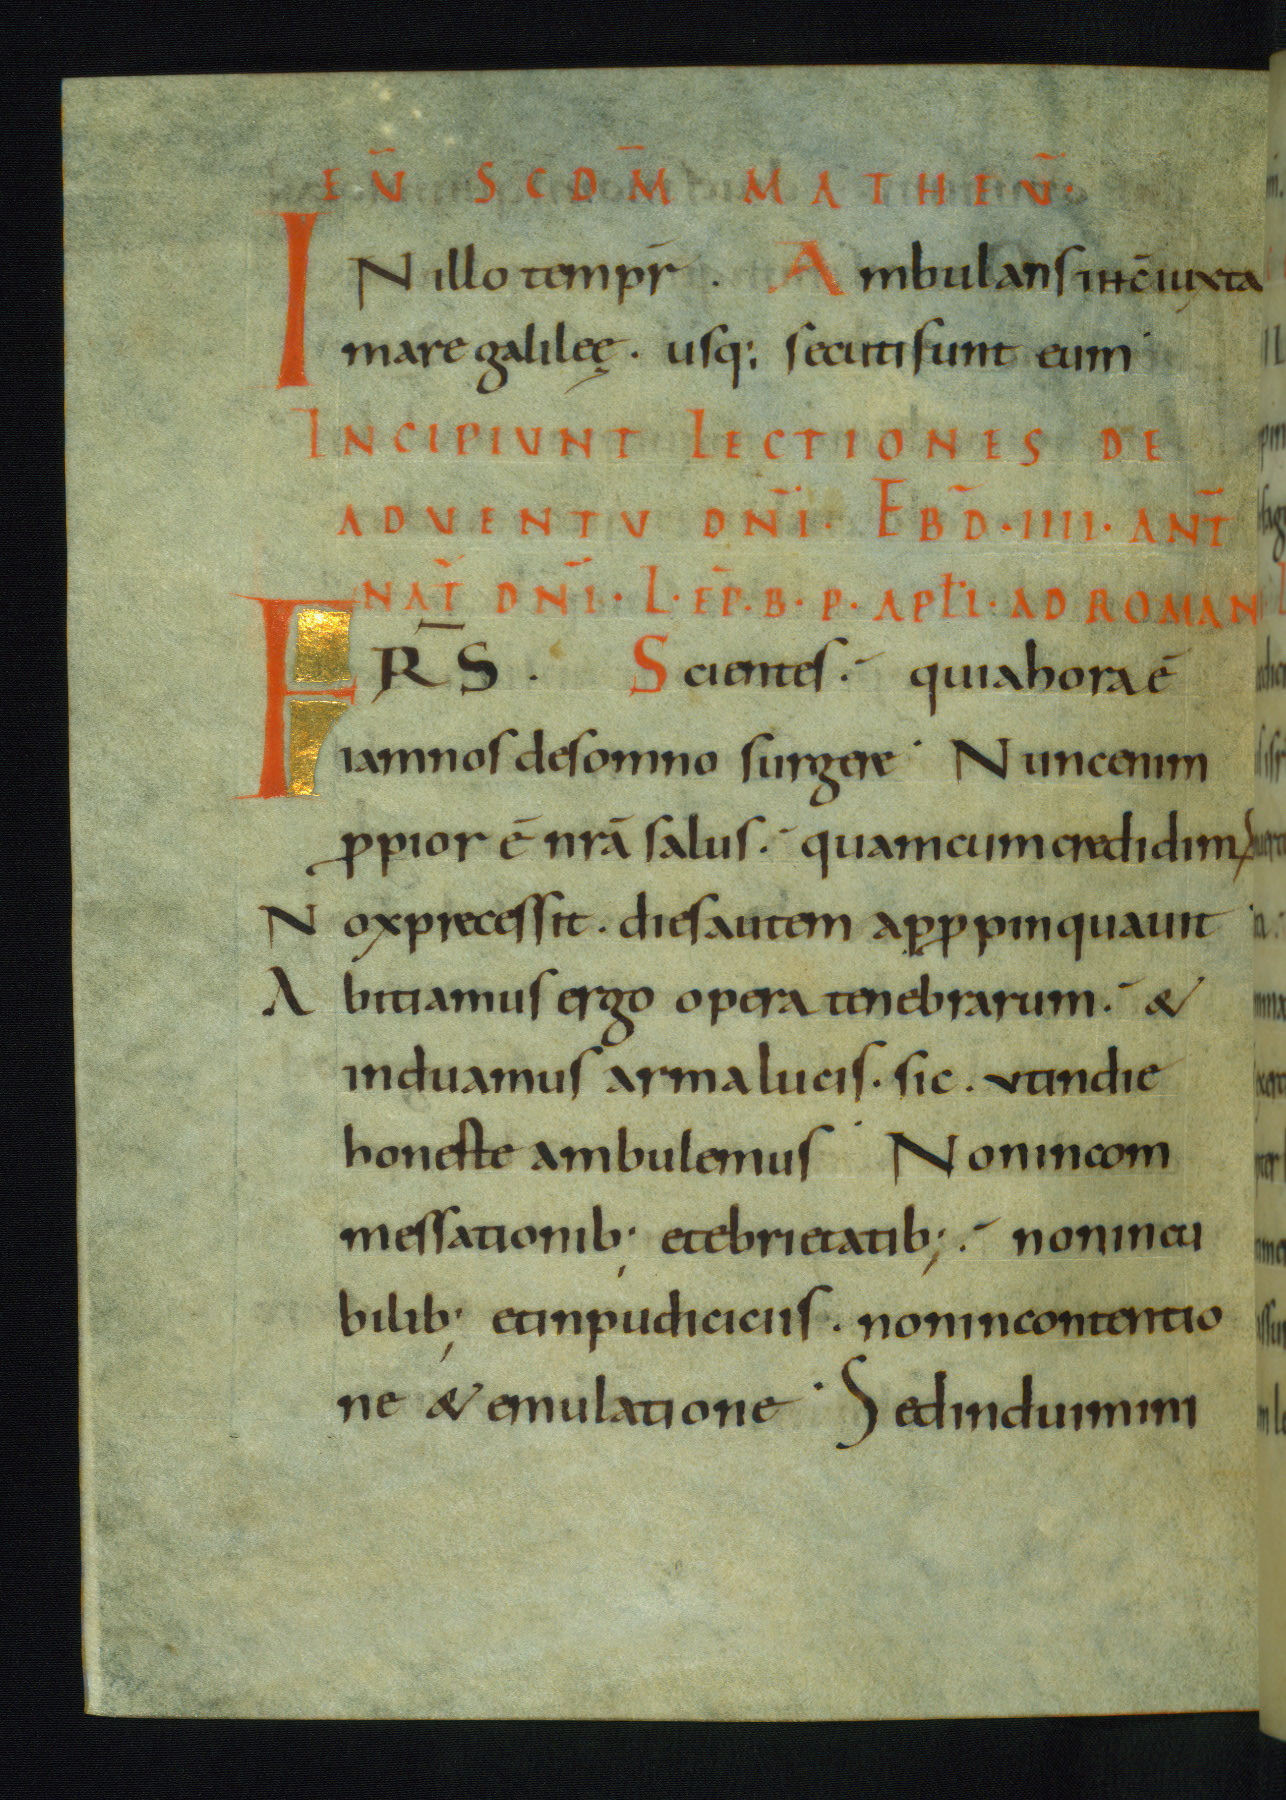 EV̄ SCDM̄ MATHEV̄·
IN illo tempr̄ . Ambulans ihc̄ iuxta
mare galileę . usq; secuti sunt eum
INCIPIUNT LECTIONES DE
ADVENTU DN̄I · EBD̄ · IIII · ANT̄
NAT̄ DN̄I · L · EP̄ · B · P · APLI · AD ROMAN
FR̄S . Scientes . quia hora ē
iam nos de somno surgere · Nunc enim
ꝓpior ē nrā salus . quam cum credidim;
Nox precessit . dies autem apꝓpinquauit ·
Abitiamus ergo opera tenebrarum . &
induamus arma lucis . sic . ut in die
honeste ambulemus · Non in com
messationib; et ebrietatib; . non in cu
bilib; et inpudiciciis . non in contentio
ne & emulatione · Sed induimini